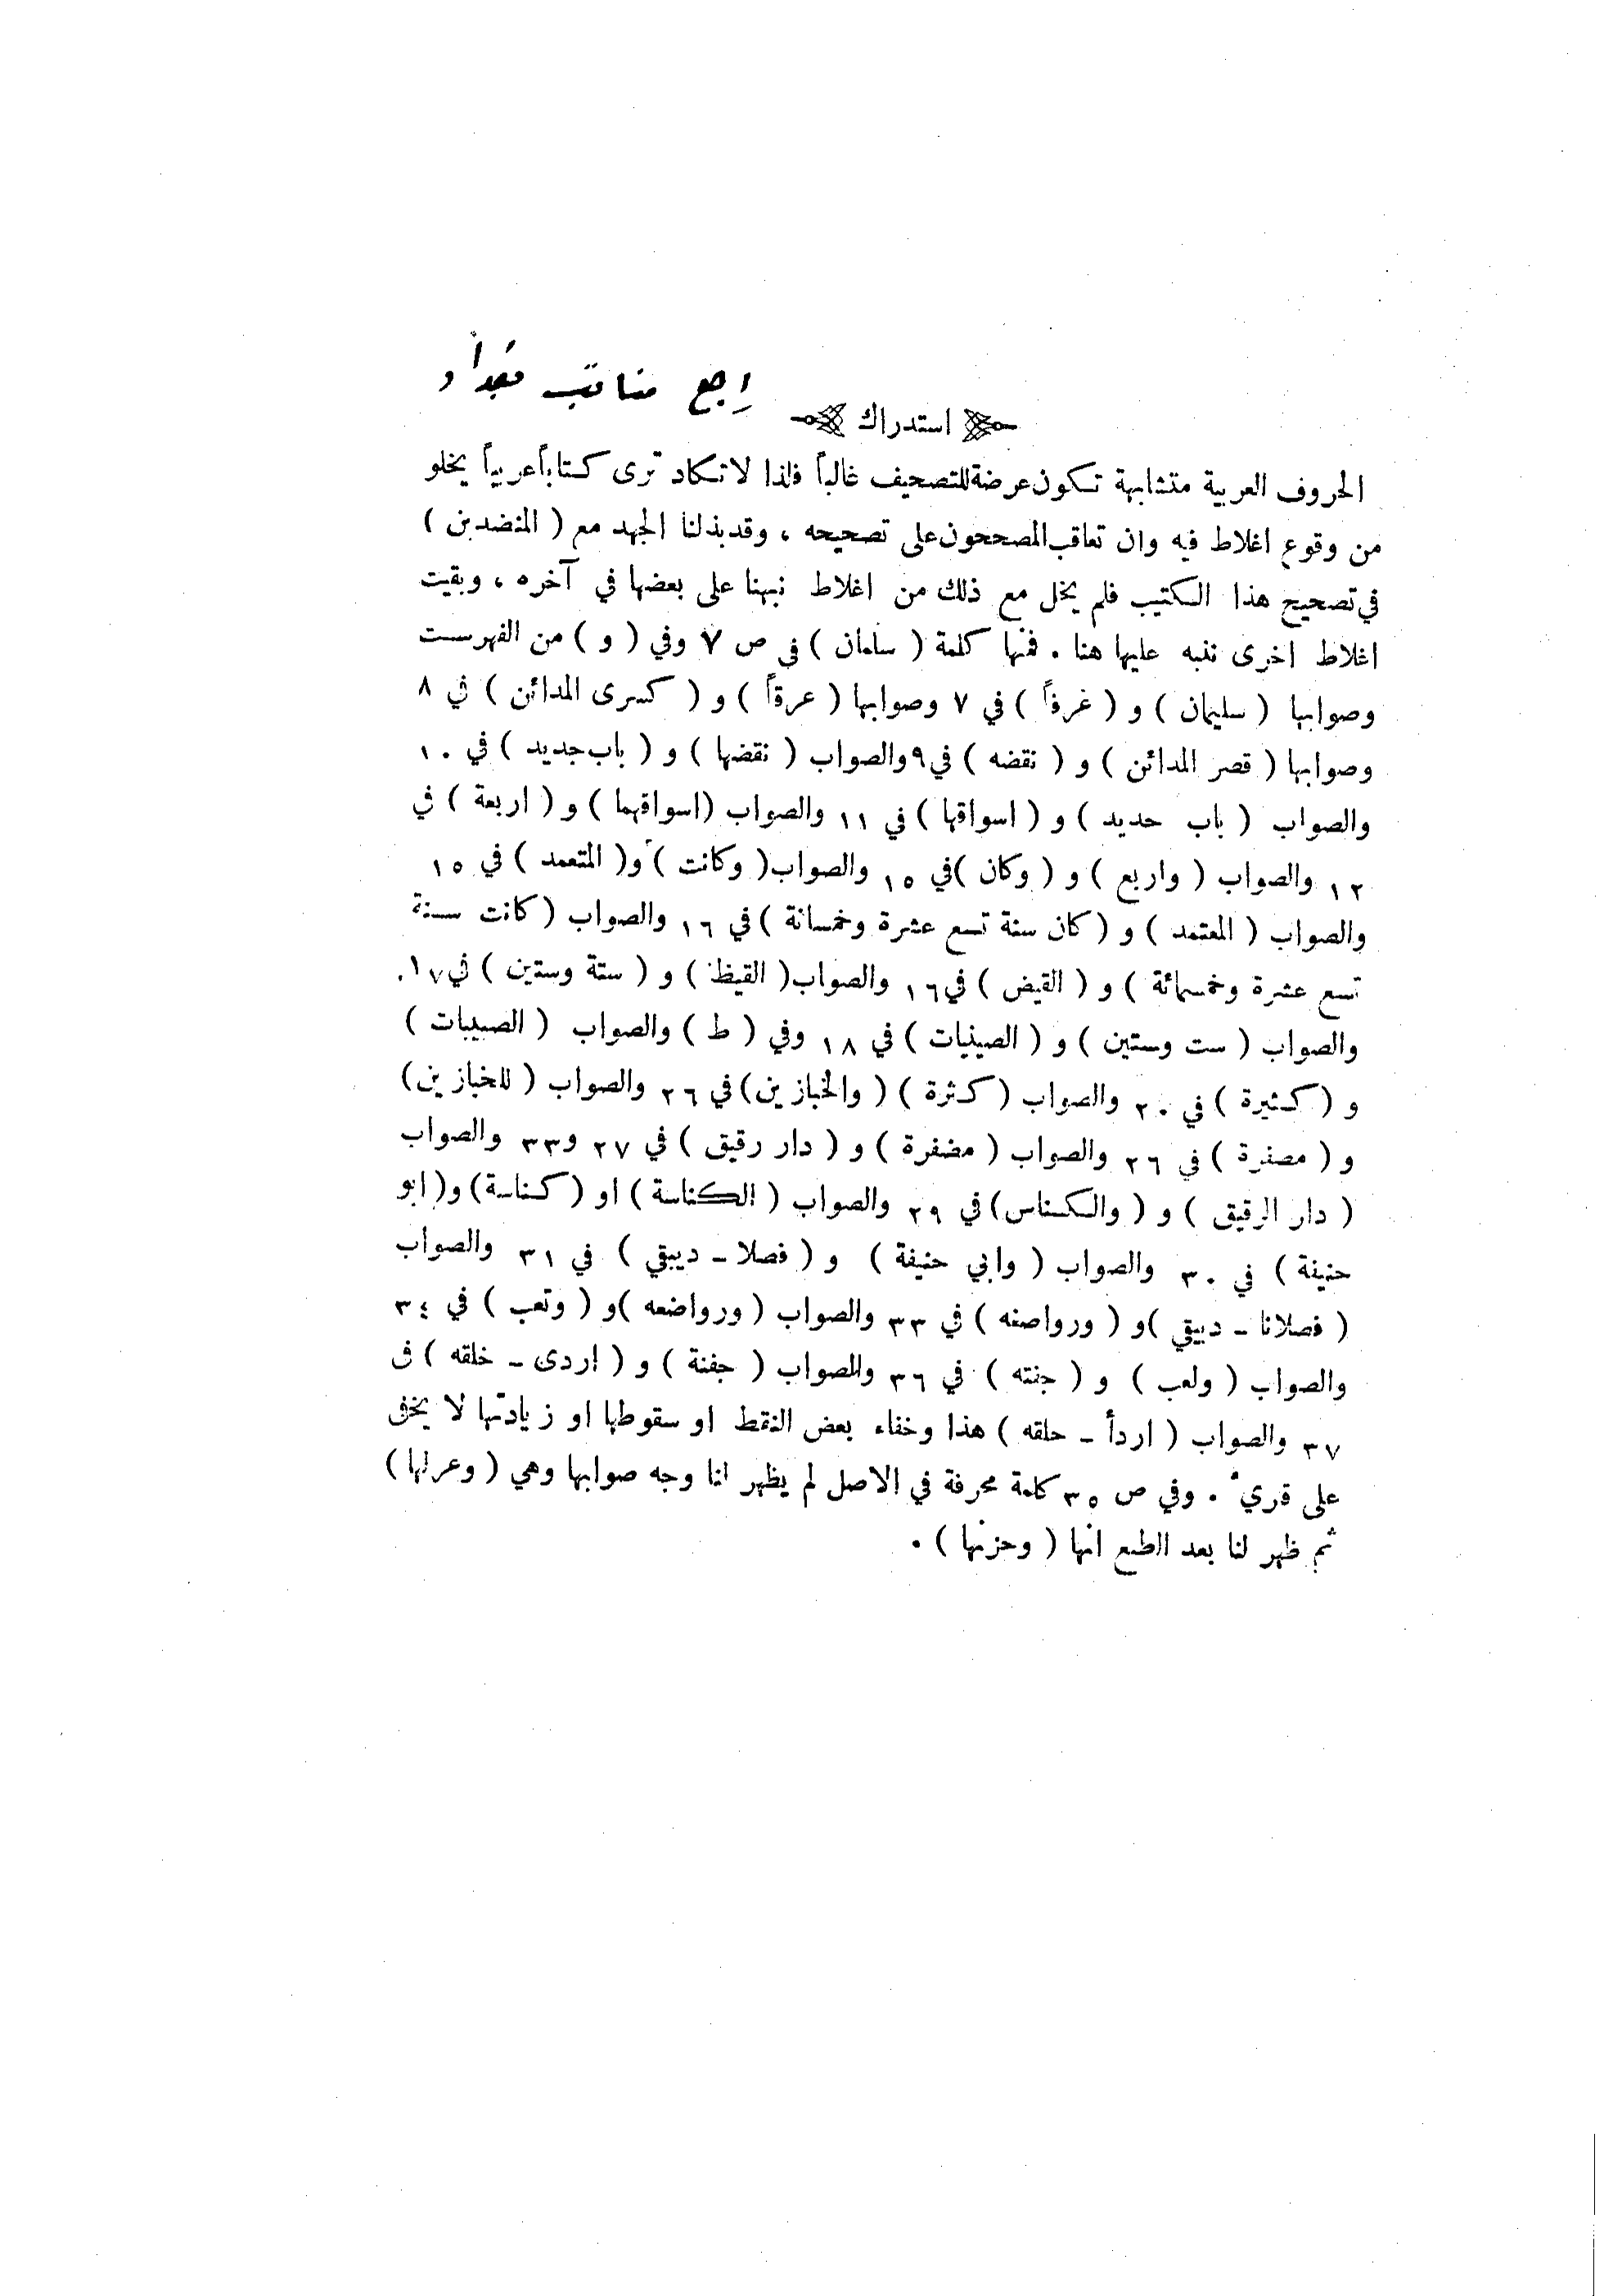 راجع مناقب بغداد
استدراك
الحروف العربية متشابهة تكون عرضة للتصحيف غالباً فلذا لا تكاد ترى كتاباً عربياً يخلو
من وقوع اغلاط فيه وان تعاقب المصححون على تصحيحه ، وقد بذلنا الجهد مع ( المنضدين )
في تصحيح هذا الكتيب فلم يخل مع ذلك من اغلاط نبهنا على بعضها في آخره ، وبقيت
اغلاط اخرى ننبه عليها هنا . فمنها كلمة ( سلمان ) في ص ٧ وفي ( و ) من الفهرست
وصوابها ( سليمان ) و ( غرفاً ) في ٧ وصوابها ( عرقاً ) و ( كسرى المدائن ) في ٨
وصوابها ( قصر المدائن ) و ( نقضه ) في ٩ والصواب ( نقضها ) و ( باب جديد ) في ١٠
والصواب ( باب حديد ) و ( اسواقها ) في ١١ والصواب ( اسواقهما ) و ( اربعة ) في
١٢ والصواب ( واربع ) و ( وكان ) في ١٥ والصواب ( وكانت ) و ( المتعمد ) في ١٥
والصواب ( المعتمد ) و ( كان سنة تسع عشرة وخمسانة ) في ١٦ والصواب ( كانت سنة
تسع عشرة وخمسمائة ) و ( القيض ) في ١٦ والصواب ( القيظ ) و ( ستة وستين ) في ١٧ .
والصواب ( ست وستين ) و ( الصينيات ) في ١٨ وفي ( ط ) والصواب ( الصبيبات )
و ( كثيرة ) في ٢٠ والصواب ( كثرة ) ( والخبازين ) في ٢٦ والصواب ( للخبازين )
و ( مصفرة ) في ٢٦ والصواب ( مضفرة ) و ( دار رقيق ) في ٢٧ و ٣٣ والصواب
( دار الرقيق ) و ( والكناس ) في ٢٩ والصواب ( الكناسة ) او ( كناسة ) و ( ابو
حنيفة ) في ٣٠ والصواب ( وابي حنيفة ) و ( فصلا ـ ديبقي ) في ٣١ والصواب
( فصلانا ـ دبيقي ) و ( ورواصنه ) في ٣٣ والصواب ( ورواضعه ) و ( وتعب ) في ٣٤
والصواب ( ولعب ) و ( جنته ) في ٣٦ والصواب ( جفنة ) و ( اردى ـ خلقه ) في
٣٧ والصواب ( اردأ ـ حلقه ) هذا وخفاء بعض النقط او سقوطها او زيادتها لا يخفى
على قريء . وفي ص ٣٥ كلمة محرفة في الاصل لم يظهر لنا وجه صوابها وهي ( وعرلها )
ثم ظهر لنا بعد الطبع انها ( وحزنها ) .